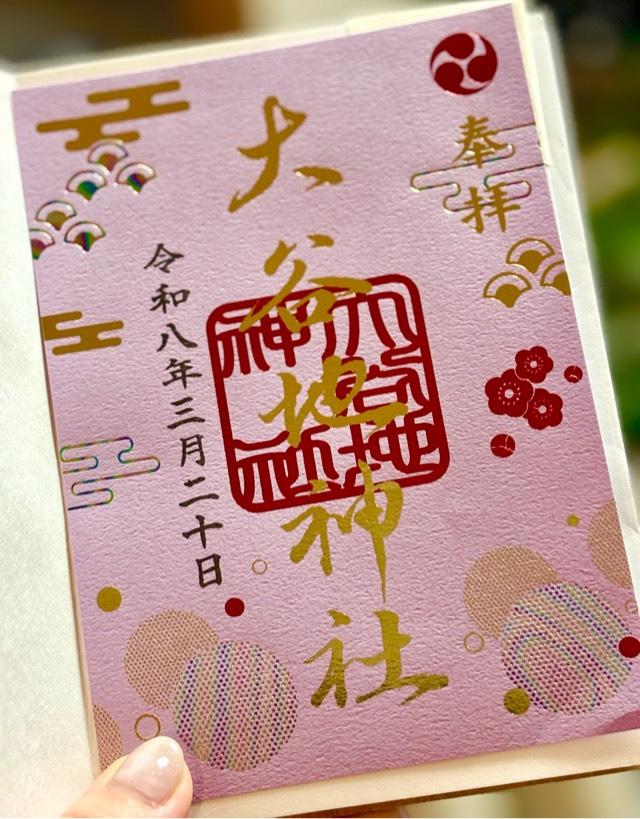 奉拝
大谷地神社
大谷地神社
令和八年三月二十日